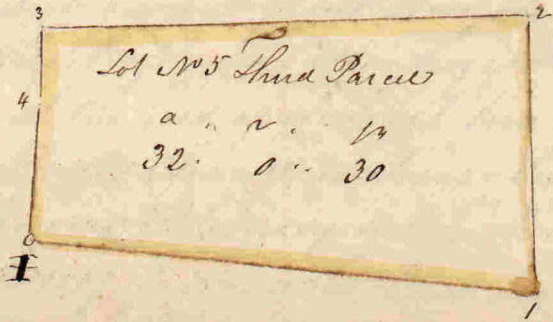 3 2
Lot No 5 Third Parcel
4
a .. r .. p
32 . 0 .. 30
0
I
1